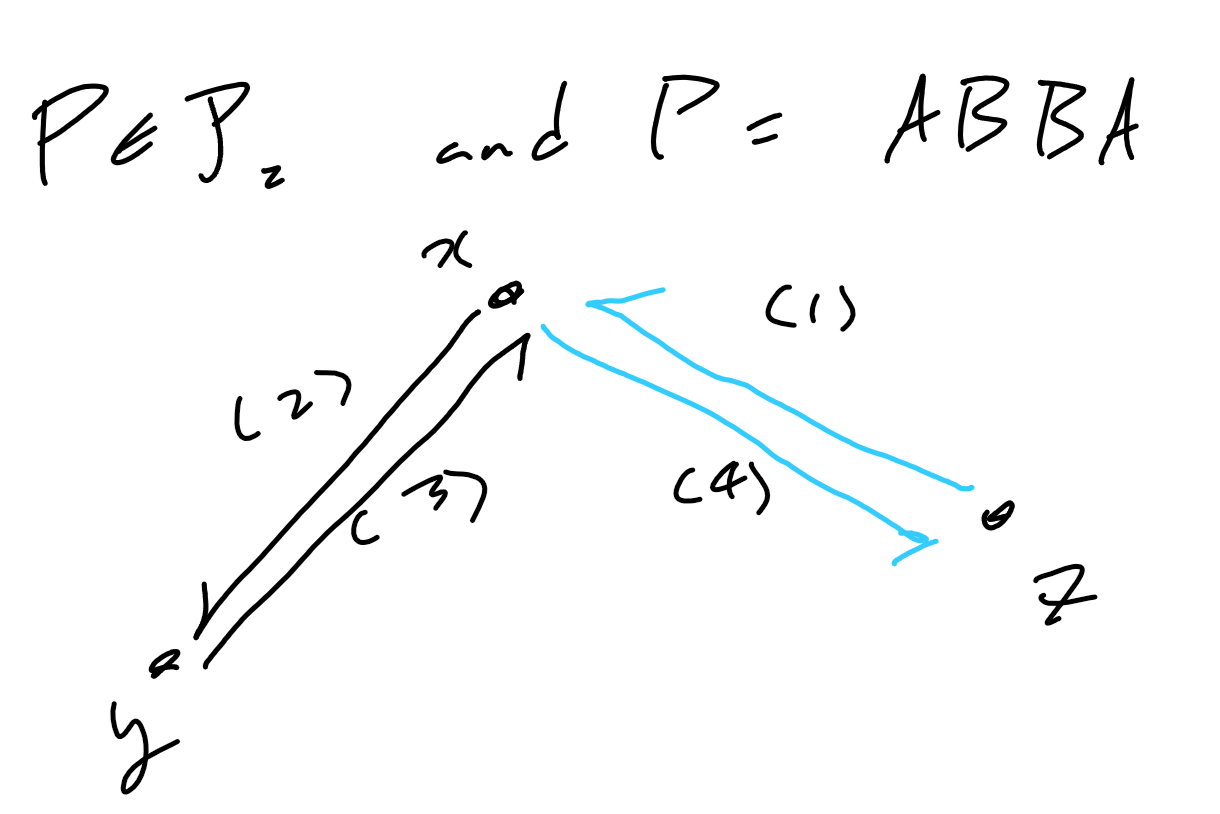 P ∈ P₂ and P = ABBA
x
(1)
(2)
(3)
(4)
z
y